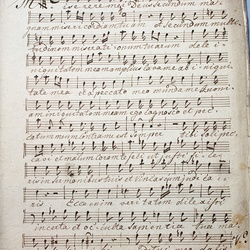 Miserere mei Deus secundum ma
gnam misericordiam et secundum multi
tudinem miserati onum tuarum dele i
niquitatem meam amplius lava me ab i niqui
tate mea et a peccato meo munda me quoni
am iniquitatem meam ego cognosco et pec
catum meum contra me est semper tibi soli pec
cavi et malum coram te feci ut justi fi ce
ris in sermonibus tuis et vincas cum judi ca
ris Ecce enim veri tatem dile xisti
incerta et oc culta sapientiæ tuæ ma